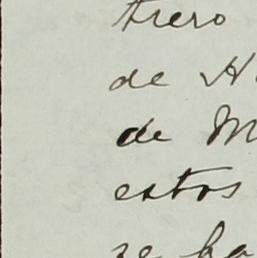 trero
de H
de M
estos
se ha